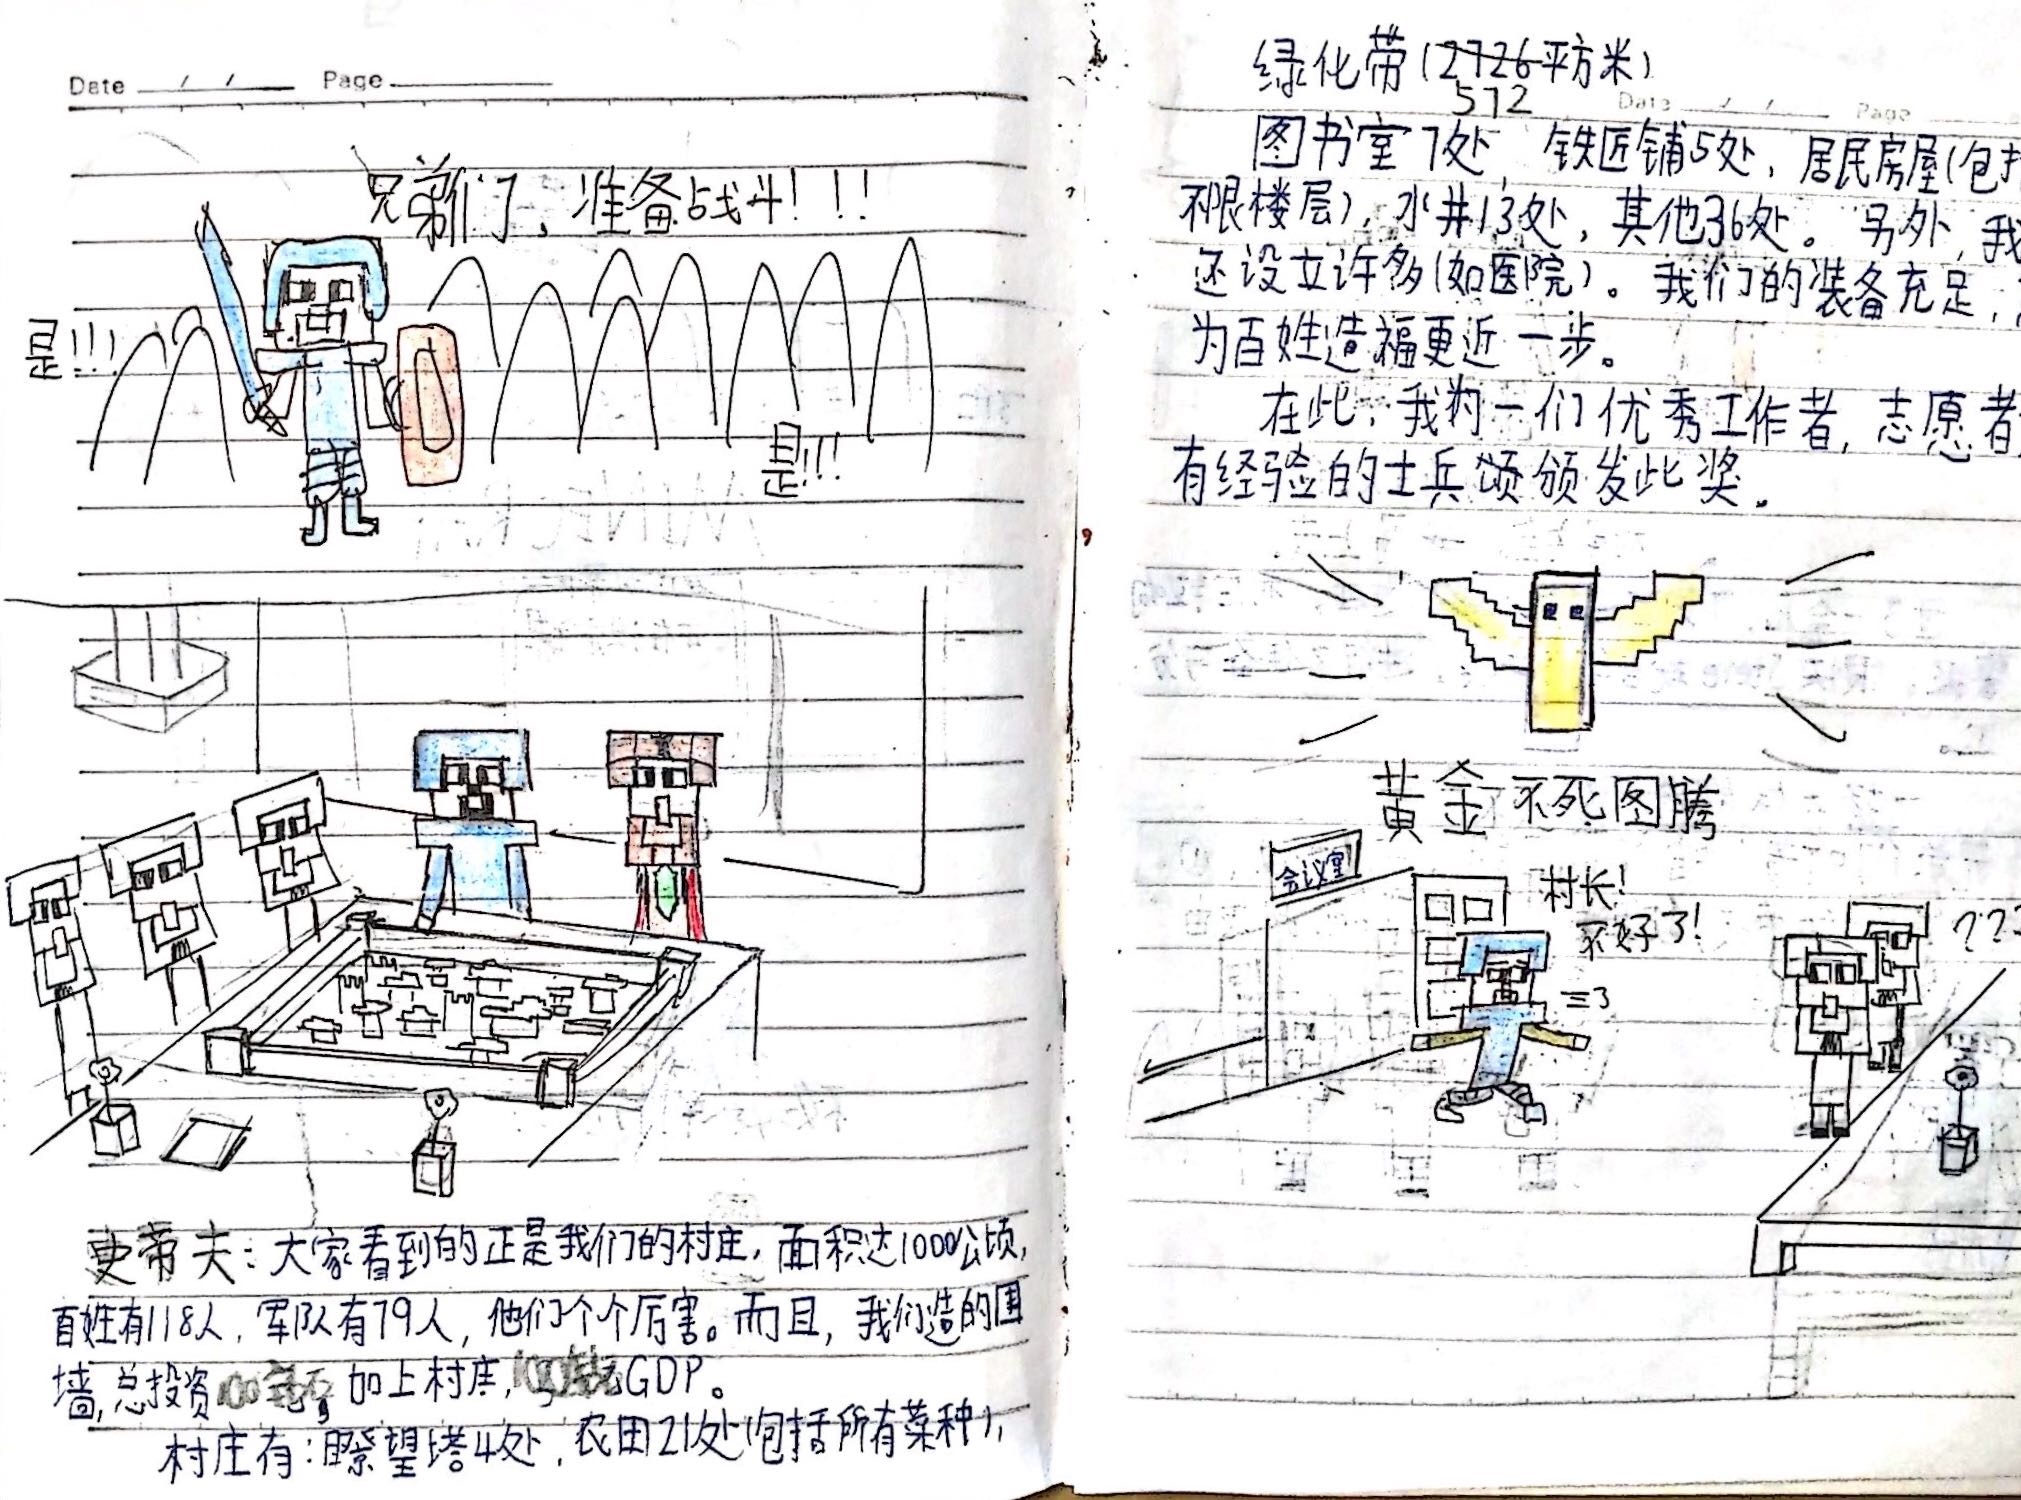 Date / / Page
兄弟们，准备战斗！！！
是！！！
是！！！
史蒂夫：大家看到的正是我们的村庄，面积达1000公顷，
百姓有118人，军队有79人，他们个个厉害。而且，我们造的围
墙，总投资 加上村庄， GDP。
村庄有：瞭望塔4处，农田21处（包括所有菜种），
绿化带（2726平方米）
572
Date / / Page
图书室7处，铁匠铺5处，居民房屋（包括
不限楼层），水井13处，其他36处。另外，我
还设立许多（如医院）。我们的装备充足，
为百姓造福更近一步。
在此，我为一们优秀工作者，志愿者
有经验的士兵颂颁发此奖。
黄金不死图腾
会议室
村长！
不好了！
三3
？？？